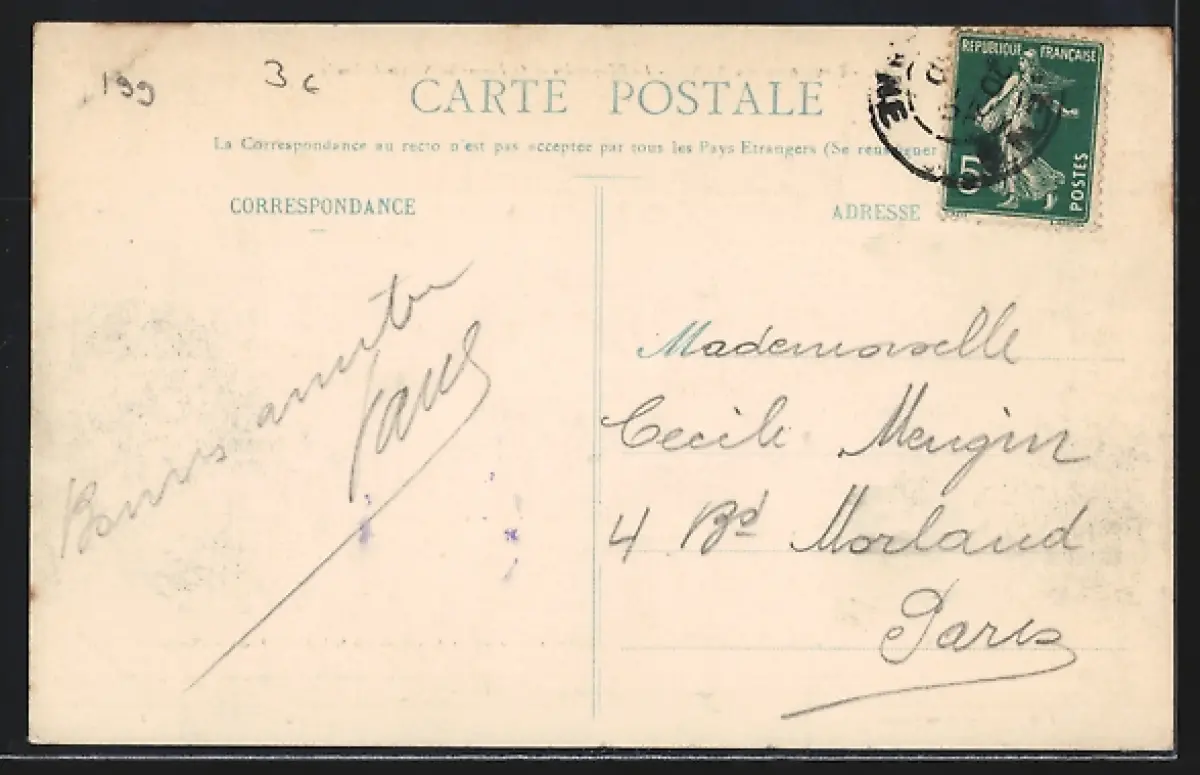 199
3c
CARTE POSTALE
La Correspondance au recto n'est pas acceptée par tous les Pays Etrangers (Se renseigner
CORRESPONDANCE
ADRESSE
REPUBLIQUE FRANÇAISE
5
POSTES
NE
Mademoiselle
Cecile Mengin
4 Bd Morland
Paris
Bonnes